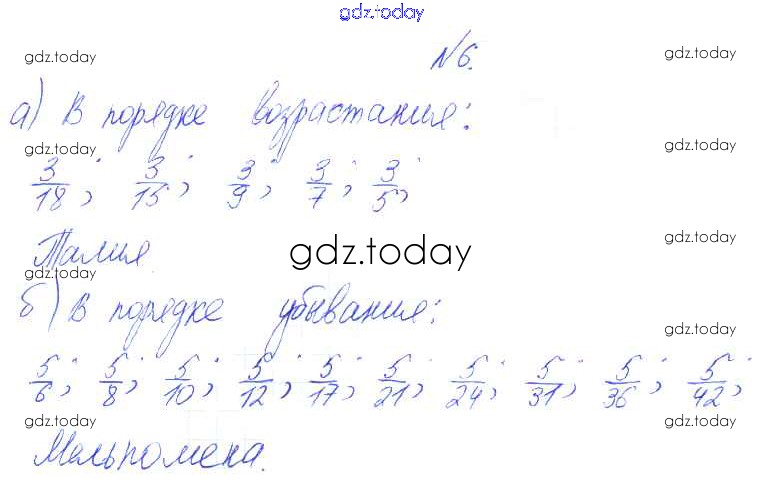 gdz.today
gdz.today gdz.today
№6.
а) В порядке возрастания:
gdz.today gdz.today
3/18; 3/15; 3/9; 3/7; 3/5;
gdz.today gdz.today
Талия.
gdz.today gdz.today
gdz.today
б) В порядке убывания:
gdz.today gdz.today
5/6; 5/8; 5/10; 5/12; 5/17; 5/21; 5/24; 5/31; 5/36; 5/42;
gdz.today gdz.today
Мельпомена.